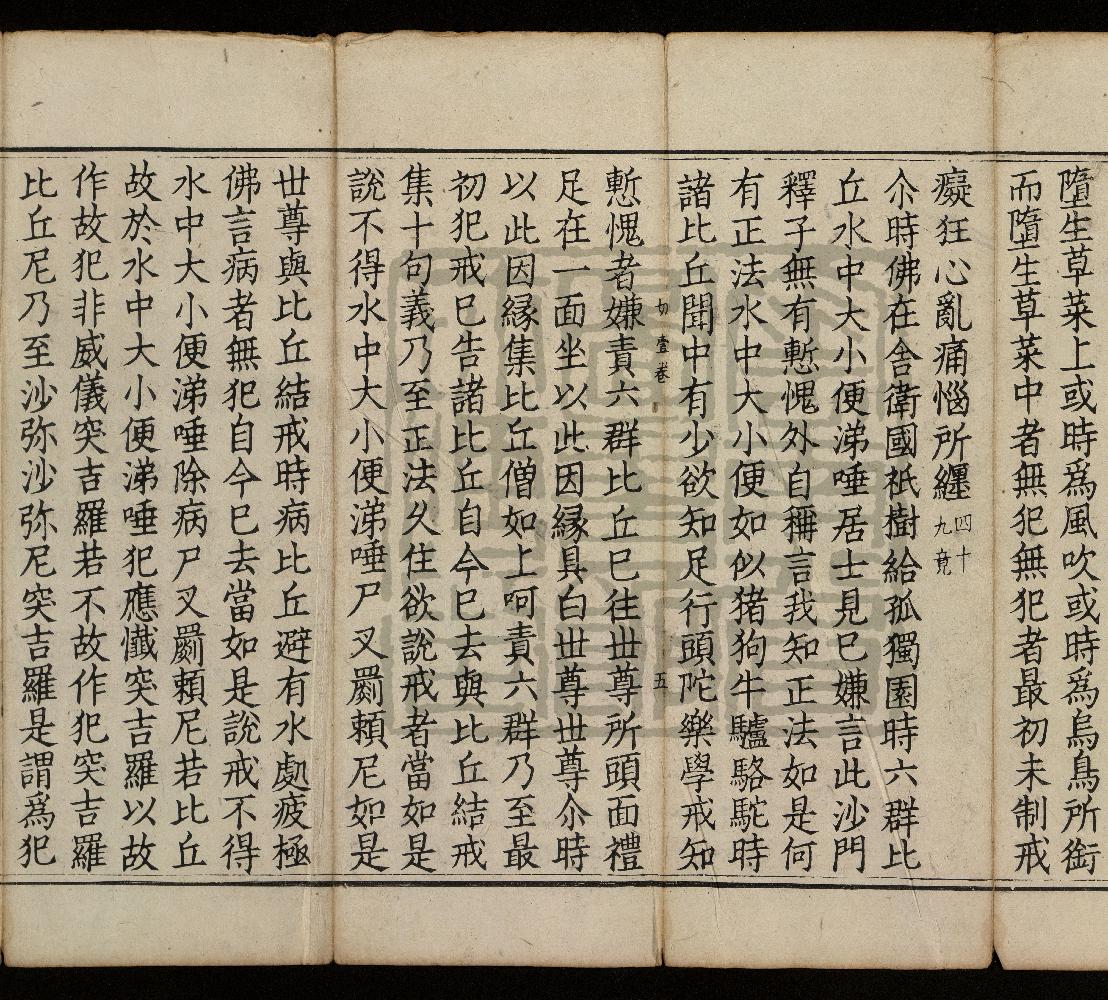 墮生草菜上或時爲風吹或時爲烏鳥所銜
而墮生草菜中者無犯無犯者最初未制戒
癡狂心亂痛惱所纏四十九竟
尒時佛在舍衛國祇樹給孤獨園時六群比
丘水中大小便涕唾居士見已嫌言此沙門
釋子無有慙愧外自稱言我知正法如是何
有正法水中大小便如似猪狗牛驢駱駝時
諸比丘聞中有少欲知足行頭陀樂學戒知
慙愧者嫌責六群比丘已往世尊所頭面禮
足在一面坐以此因緣具白世尊世尊尒時
以此因緣集比丘僧如上呵責六群乃至最
初犯戒已告諸比丘自今已去與比丘結戒
集十句義乃至正法久住欲說戒者當如是
說不得水中大小便涕唾尸叉罽賴尼如是
世尊與比丘結戒時病比丘避有水處疲極
佛言病者無犯自今已去當如是說戒不得
水中大小便涕唾除病尸叉罽賴尼若比丘
故於水中大小便涕唾犯應懺突吉羅以故
作故犯非威儀突吉羅若不故作犯突吉羅
比丘尼乃至沙弥沙弥尼突吉羅是謂爲犯